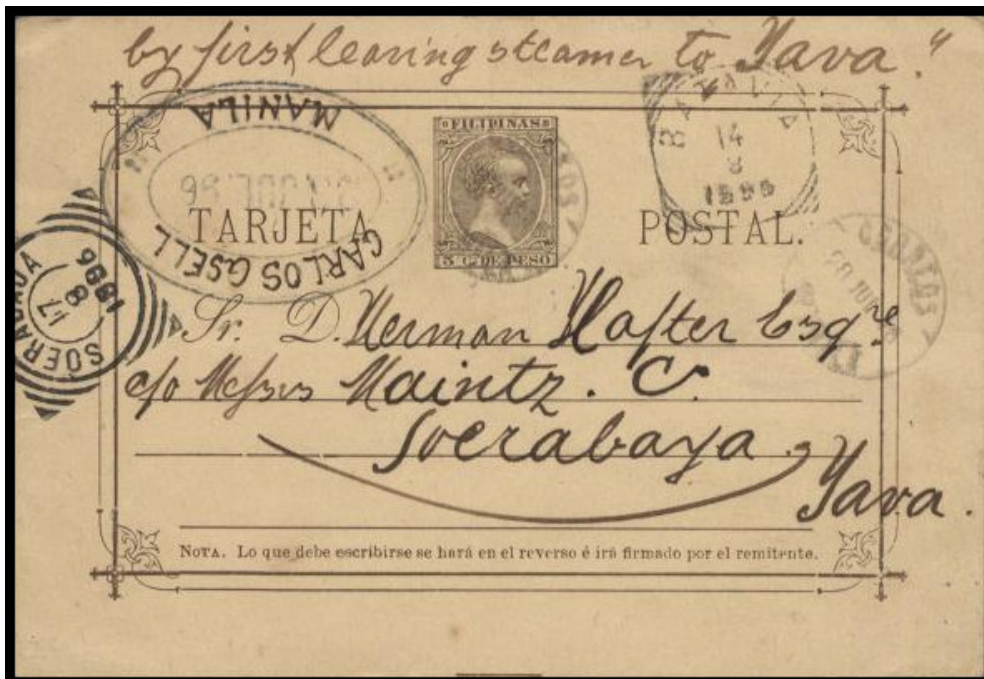 by first leaving steamer to Java."
MANILA
JUL. 96
CARLOS GSELL
FILIPINAS
5 C. DE PESO
TARJETA POSTAL.
BATAVIA
14
8
1896
CORREOS
SOERABAJA
17
8
1896
Sr. D. Herman Hafter Esqre
c/o Messrs Maintz. C.
Soerabaya.
Java.
NOTA. Lo que debe escribirse se hará en el reverso é irá firmado por el remitente.